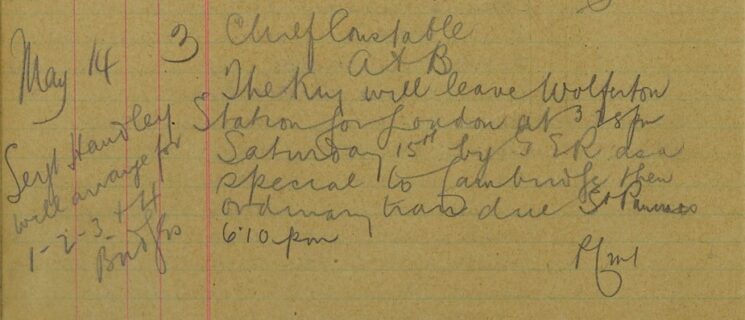 May 14
3 Chief Constable
A & B
The King will leave Wolferton
Station for London at 3 28 pm
Saturday 15th by G E R as a
special to Cambridge then
ordinary train due St Pancras
6.10 pm
Sergt Handley
will arrange for
1-2-3 & 4
Bridges